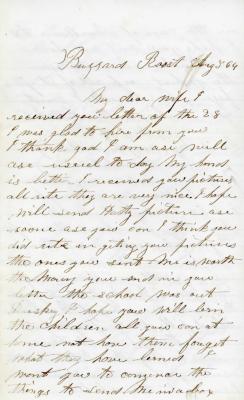 Buzzard Roost Jany 3 64
My dear wife I
received your letter of the 28
I was glad to hire from you
I thank god I am as will
ase usuel to day My hand
is bettr I received your pictures
all rite they are very nice I hope
will send Hetty picture ase
soone ase you can I think you
did rite in geting your pictures
the ones you sent me is worth
the Money you send in your
letter the school was out
I hope you will lern
the Children all you can at
home not have them forget
what they have lerned I
want you to comence the
things to send Me in a box